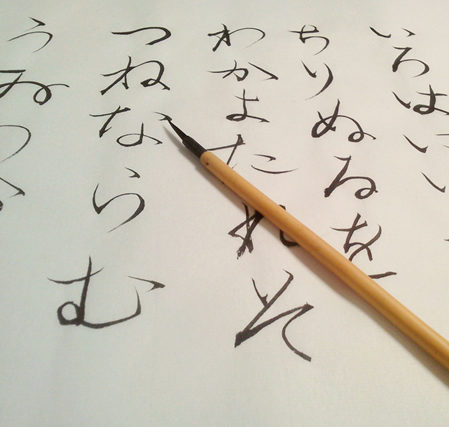 いろはに
ちりぬるを
わかよたれそ
つねならむ
うゐの